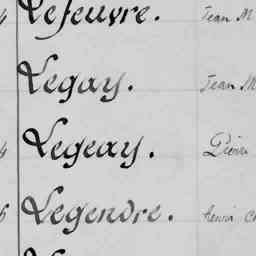 Lefeuvre. Jean M
Legay. Jean M
Legeay. Pierre
Legendre. henri